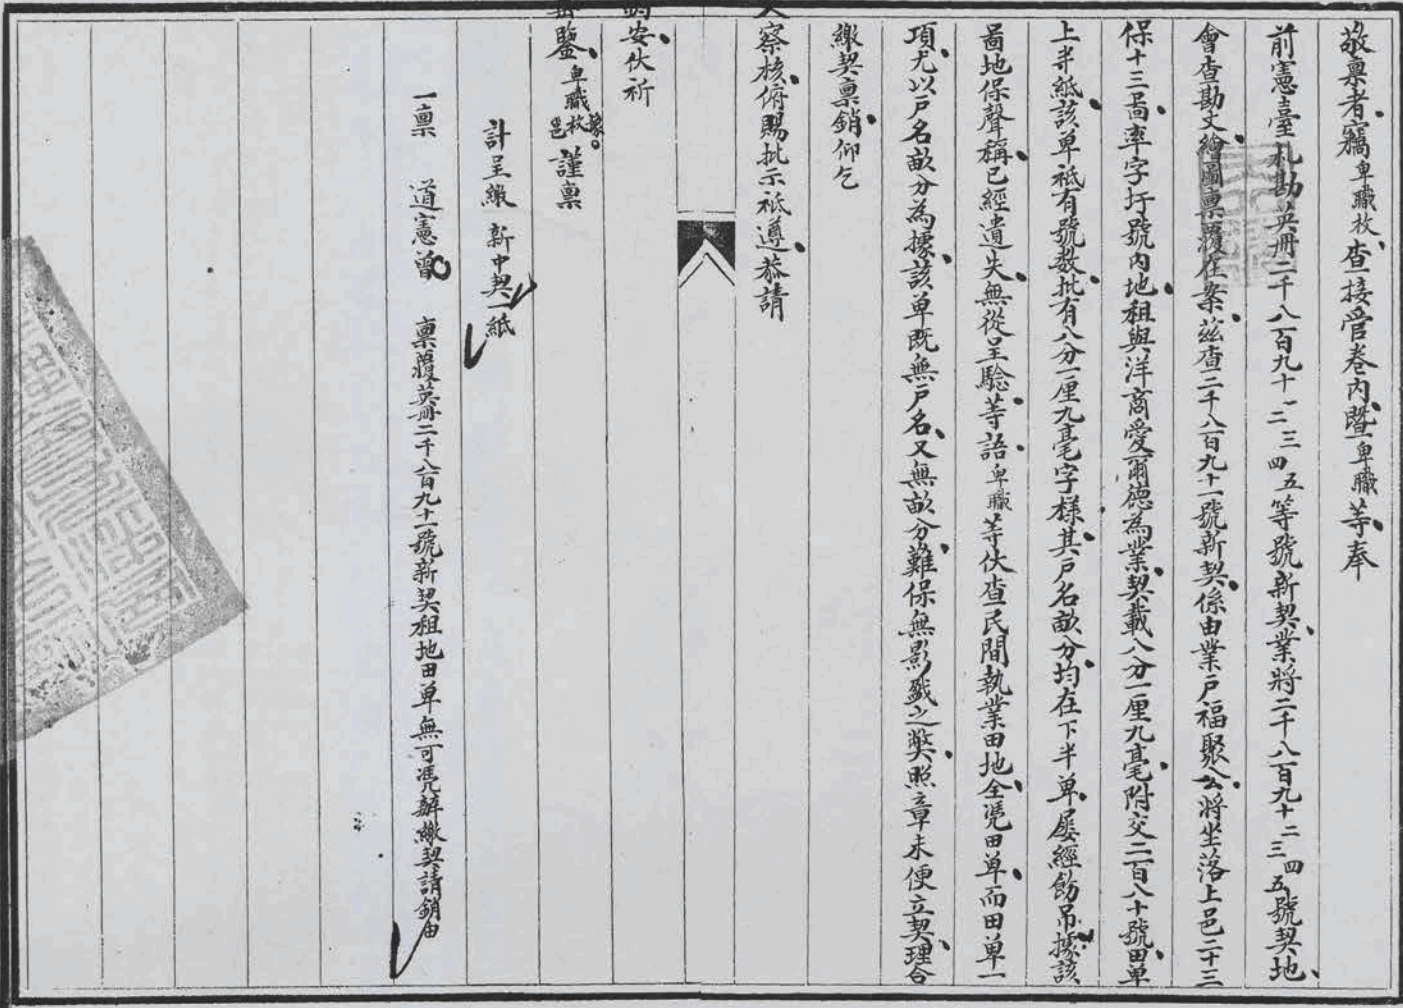 敬稟者竊卑職枚查接管卷內暨卑職等奉
前憲臺札勘英冊二千八百九十一二三四五等號新契業將二千八百九十二三四五號契地
會查勘丈繪圖稟覆在案茲查二千八百九十一號新契係由業戶福聚公將坐落上邑二十三
保十三啚率字圩號內地租與洋商愛爾德為業契載八分一厘九毫附交二百八十號田單
上半紙該單祗有號數批有八分一厘九毫字樣其戶名畝分均在下半單屢經飭吊據該
啚地保聲稱已經遺失無從呈驗等語卑職等伏查民間執業田地全凴田單而田單一
項尤以戶名畝分為據該單既無戶名又無畝分難保無影戤之獘照章未便立契理合
繳契稟銷仰乞
察核俯賜批示祗遵恭請
安伏祈
鑒卑職枚謹稟
計呈繳新中契一紙
一稟 道憲曾 稟覆英冊二千八百九十一號新契租地田单無可凴辦繳契請銷由